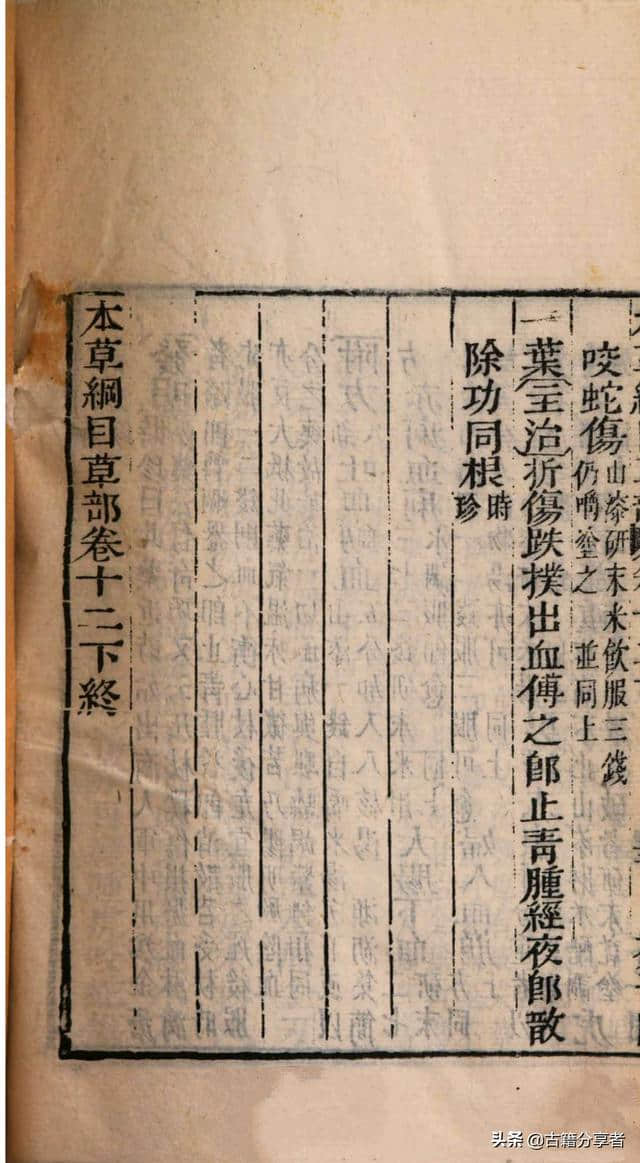 咬蛇傷山漆研末米飲服三錢
仍嚼塗之 並同上
葉主治折傷跌撲出血傅之卽止青腫經夜卽散
除功同根時珍
本草綱目草部卷十二下終
头条 @古籍分享者